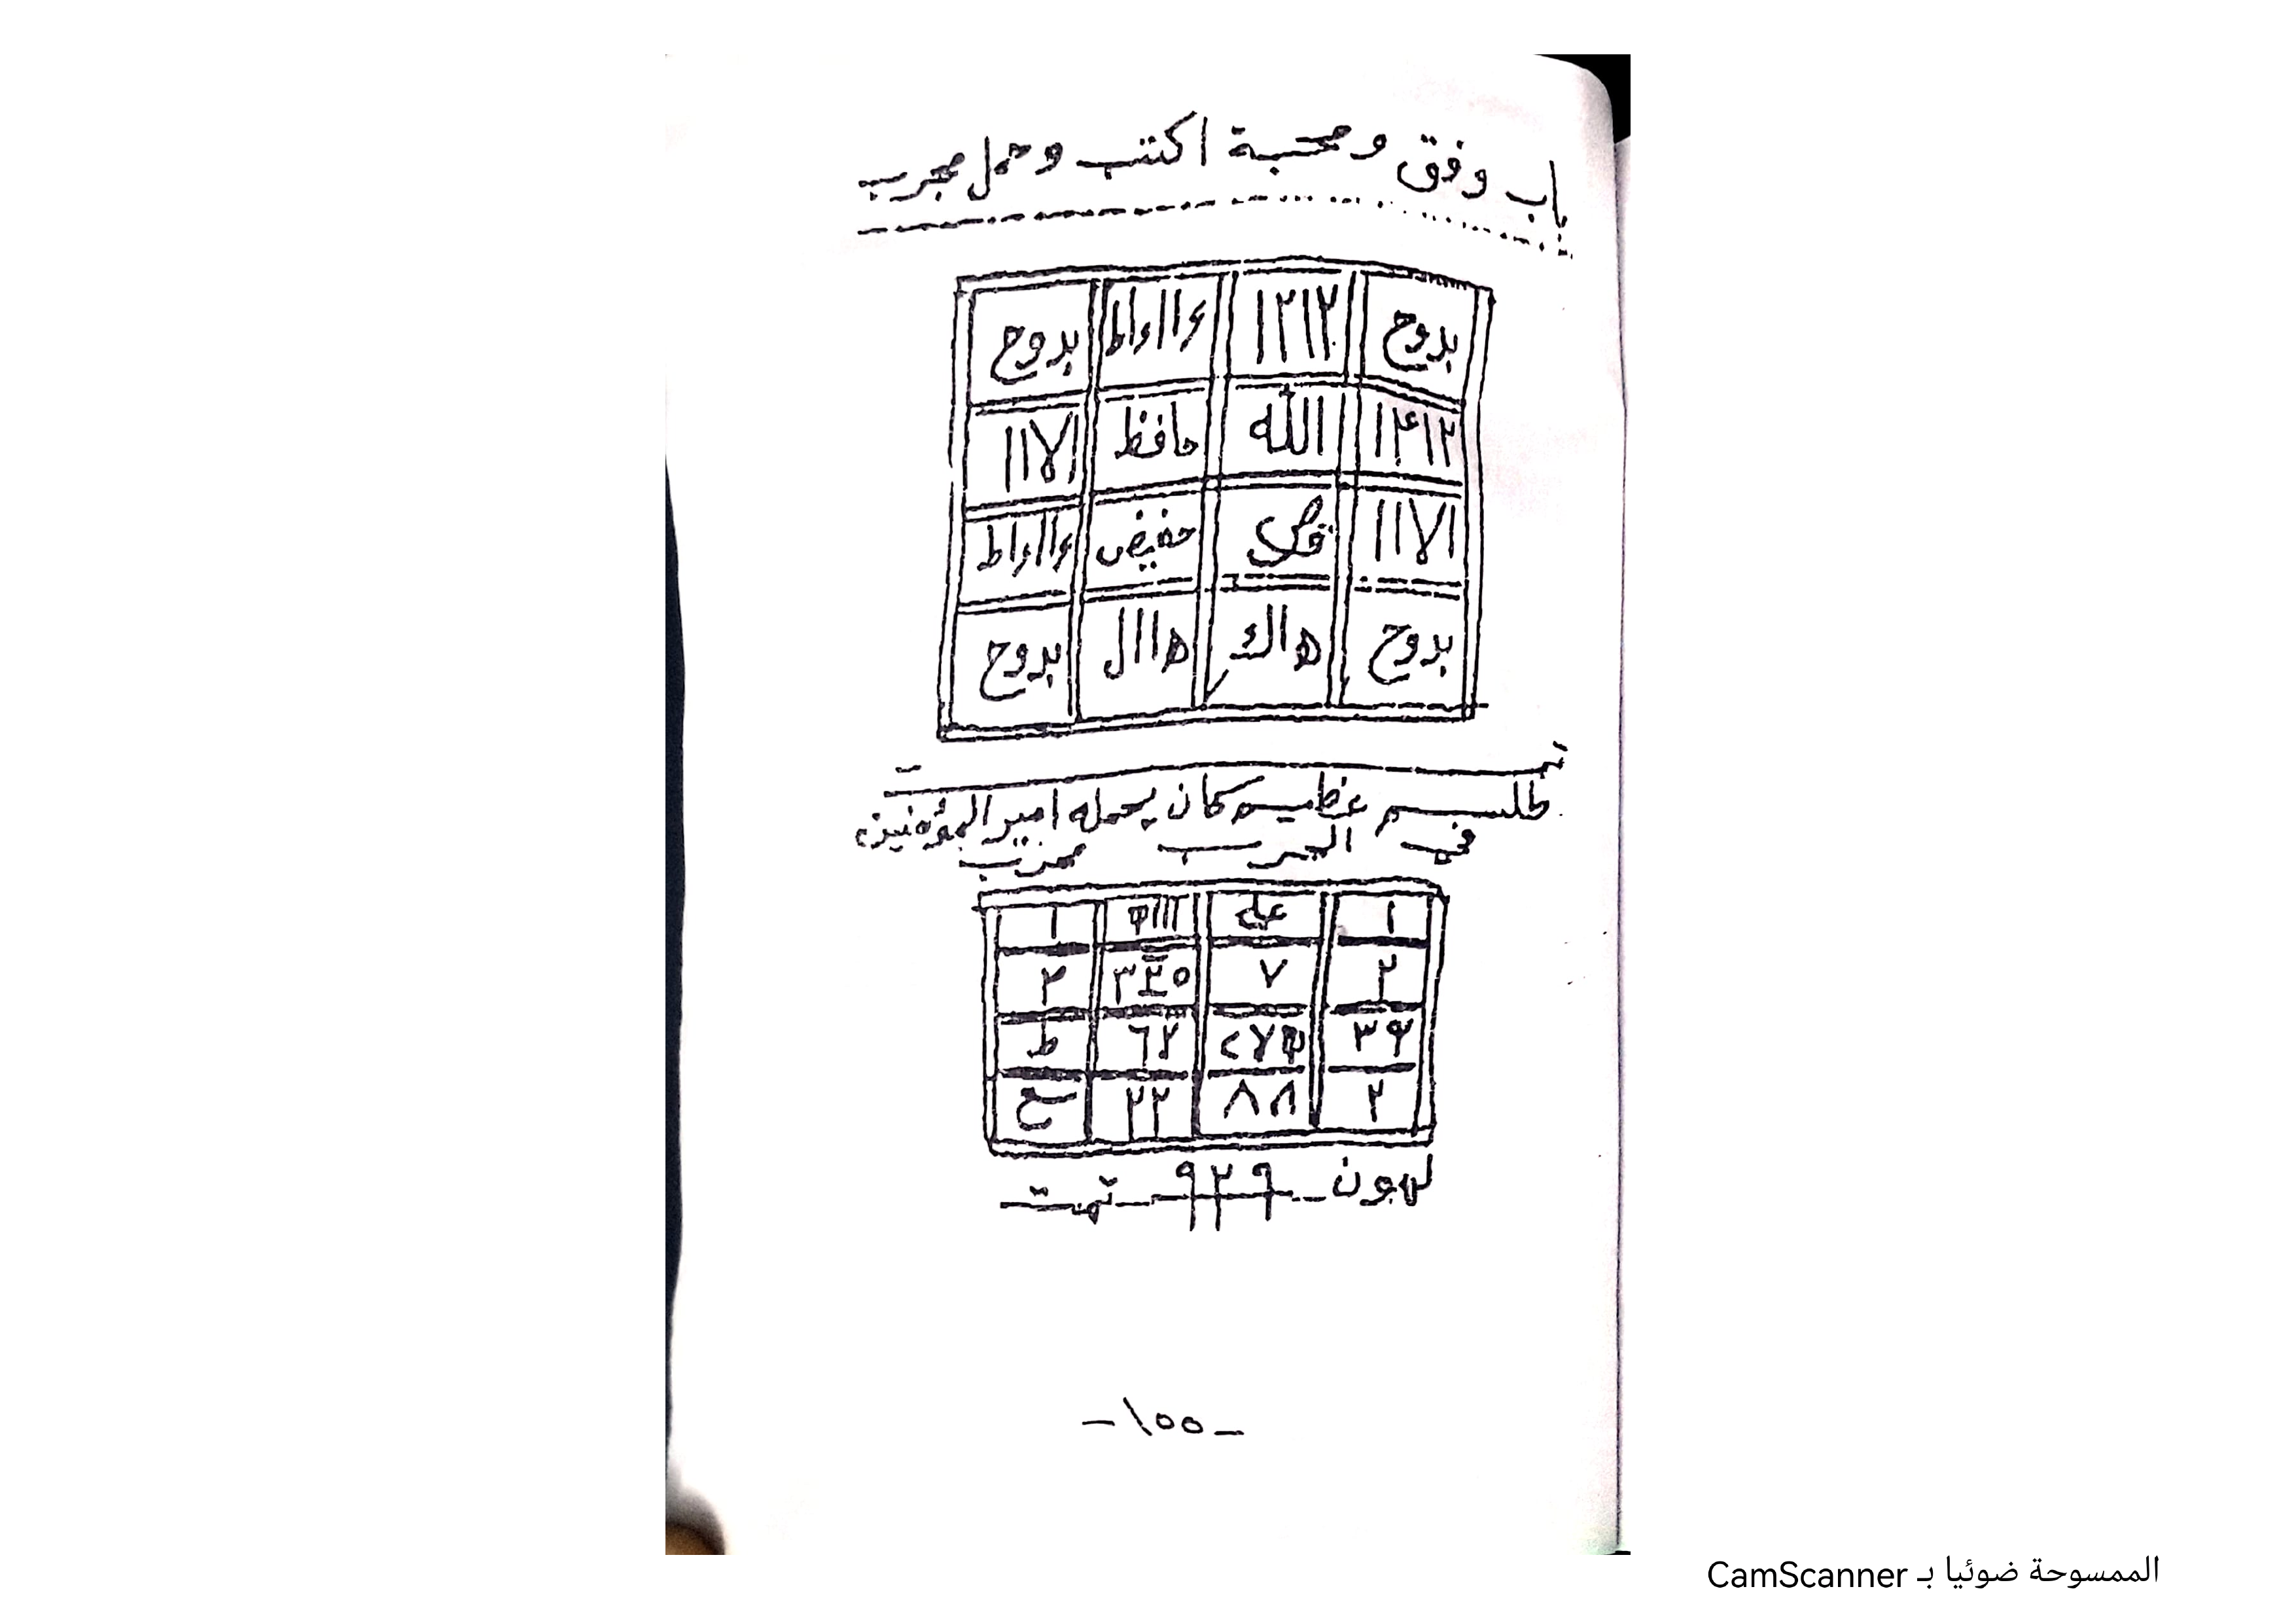 باب وفق ومحبة اكتب وحمل مجرب
بدوح ١٢١٢ ١١١اط بدوح
١٤١٢ الله حافظ ١١لا١
١١لا١ قل حفيض
بدوح هاك هااال بدوح
طلسم عظيم كان يحمله امير المؤمنين
في الحرب مجرب
ا علي ااا ا
٢ ٧ ٣ ٢
٣٩ ٦٢ ط
٢ ٨٨ ٢٢ ح
٩٢٩ تمت
-١٥٥-
الممسوحة ضوئيا بـ CamScanner